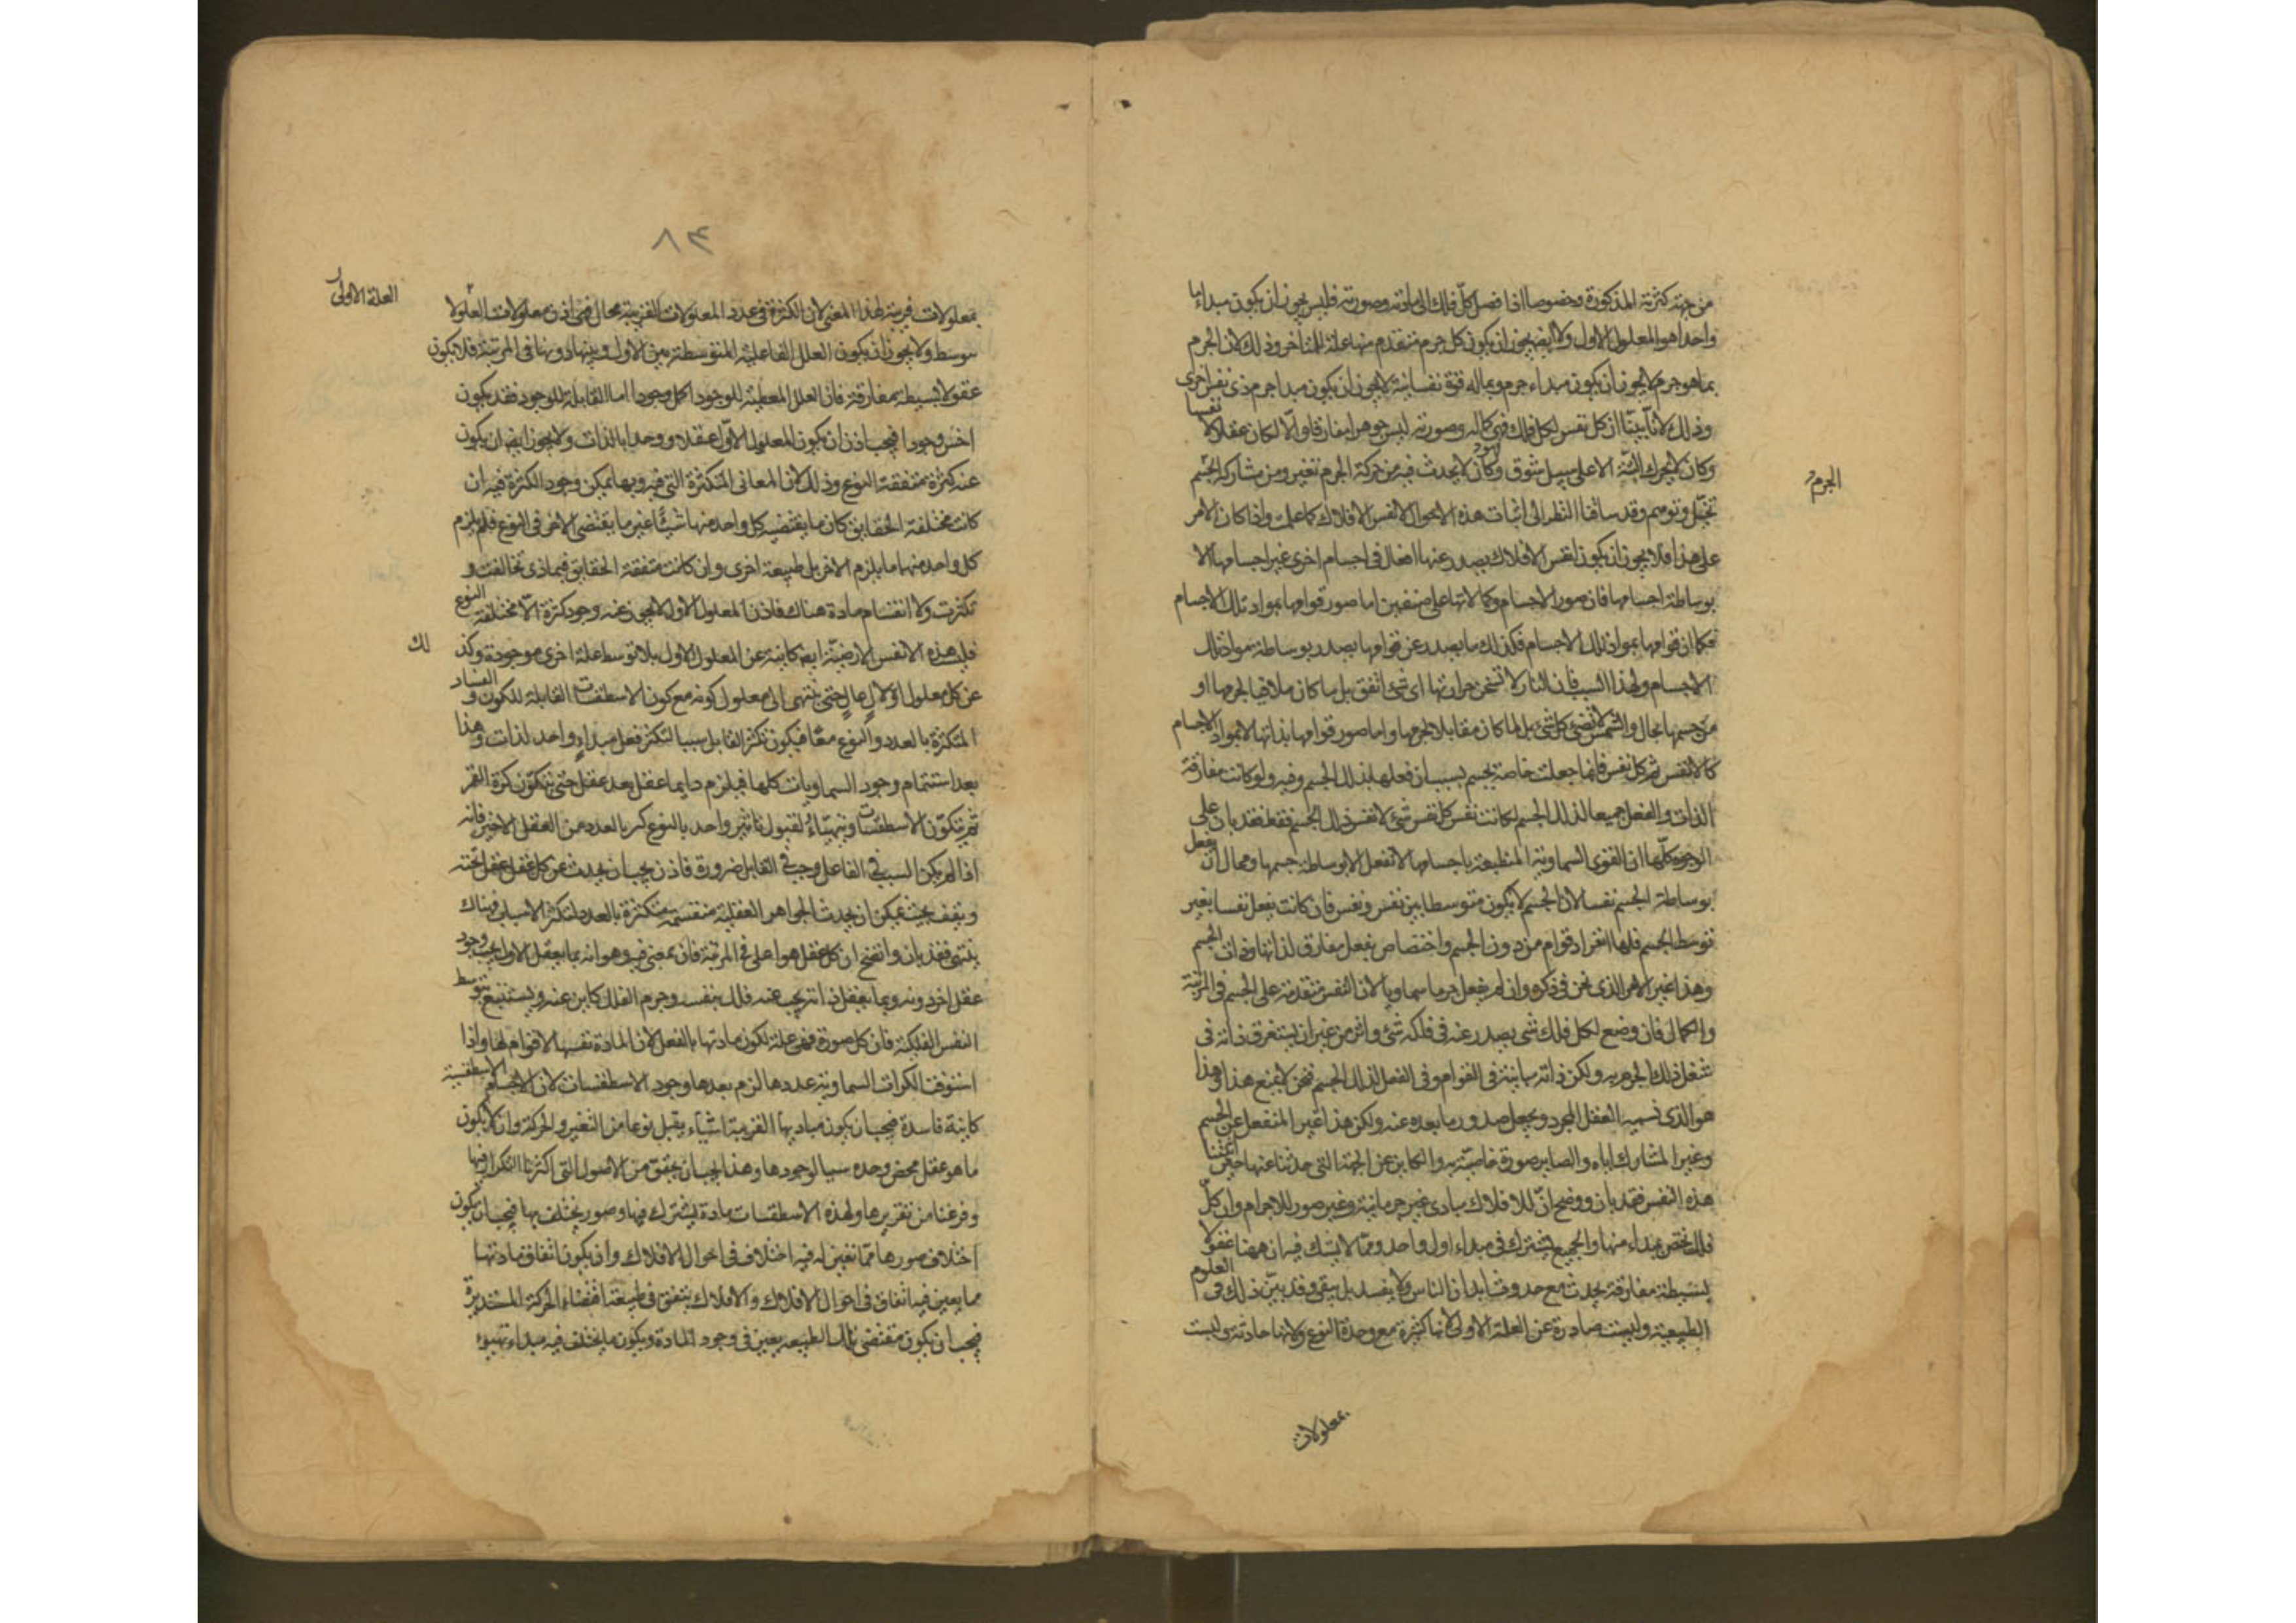 من جهة كثرته المذكورة وخصوصا اذا فصل كل فلك الى مادته وصورته فليس يجوز ان يكون مبداءها
واحدا هو المعلول الاول ولا ايضا يجوز ان يكون كل جرم متقدم منها علة للمتاخر وذلك لان الجرم
بما هو جرم لا يجوز ان يكون مبداء جرم وبماله قوة نفسانية لا يجوز ان يكون مبدا جرم ذى نفس اخرى
وذلك لانا بينا ان كل نفس لكل فلك فهى كماله وصورته ليس جوهرا مفارقا والا لكان عقلا لا نفسا
وكان لا يحرك البتة الا على سبيل شوق وكان لا يحدث فيه من حركة الجرم تغير ومن مشاركة الجسم
تخيل وتوهم وقد ساقنا النظر الى اثبات هذه الاحوال لانفس الافلاك كما علمت واذا كان الامر
على هذا فلا يجوز ان يكون انفس الافلاك يصدر عنها افعال فى اجسام اخرى غير اجسامها الا
بوساطة اجسامها فان صور الاجسام وكمالاتها على صنفين اما صور قوامها بمواد تلك الاجسام
فكما ان قوامها بمواد تلك الاجسام فكذلك ما يصدر عن قوامها يصدر بوساطة مواد تلك
الاجسام ولهذا السبب فان النار لا تسخن حرارتها اى شئ اتفق بل ما كان ملاقيا لجرمها او
من جسمها بحال والشمس لا تضئ كل شئ بل ما كان مقابلا لجرمها واما صور قوامها بذاتها لا بمواد الاجسام
كالانفس ثم كل نفس فانما جعلت خاصة بجسم بسبب ان فعلها بذلك الجسم وفيه ولو كانت مفارقة
الذات والفعل جميعا لذلك الجسم لكانت نفس كل نفس شئ لا نفس ذلك الجسم فقط فقد بان على
الوجوه كلها ان القوى السماوية المنطبعة باجسامها لا تفعل الا بوساطة جسمها ومحال ان تفعل
بوساطة الجسم نفسا لان الجسم لا يكون متوسطا بين نفس ونفس فان كانت يفعل نفسا بغير
توسط الجسم فلها انفراد قوام من دون الجسم واختصاص بفعل مفارق لذاتها وذات الجسم
وهذا غير الامر الذى نحن فى ذكره وان لم يفعل جرما سماويا لان النفس متقدمة على الجسم فى المرتبة
والكمال فان وضع لكل فلك شئ يصدر عنه فى فلكه شئ واثر من غير ان يستغرق ذاته فى
شغل ذلك الجرم وبه ولكن ذاته مباينة فى القوام وفى الفعل لذلك الجسم فنحن لا نمنع هذا وهذا
هو الذى نسميه العقل المجرد ويجعل صدور ما بعده عنه ولكن هذا غير المنفعل عن الجسم
وغير المشارك اياه والصاير صورة خاصية به والكاين عن الجهة التى حدثنا عنها حين اثبتنا
هذه النفس فقد بان ووضح ان للافلاك مبادى غير جرمانية وغير صور للاجرام وان كل
فلك يختص بمبداء منها والجميع يشترك فى مبداء اول واحد ومما لا يشك فيه ان ههنا عقولا
بسيطة مفارقة يحدث مع حدوث ابدان الناس ولا يفسد بل يبقى وقد بين ذلك فى العلوم
الطبيعية وليست صادرة عن العلة الاولى لانها كثيرة مع وحدة النوع ولانها حادثة وليست
بمعلولات
الجرم
٨٣
بمعلولات قريبة لهذا المعنى لان الكثرة فى عدد المعلولات القريبة محال فهى اذن معلولات المعلولا
بتوسط ولا يجوز ان يكون العلل الفاعلية المتوسطة بين الاول وبينها دونها فى المرتبة فلا يكون
عقولا بسيطة مفارقة فان العلل المعطية للوجود اكمل وجودا اما القابلة للوجود فقد يكون
اخس وجودا فيجب اذن ان يكون المعلول الاول عقلا وواحدا بالذات ولا يجوز ايضا ان يكون
عنه كثرة متفقة النوع وذلك لان المعانى المتكثرة التى فيه وبها يمكن وجود الكثرة فيه ان
كانت مختلفة الحقايق كان ما يقتضيه كل واحد منها شيئا غير ما يقتضى الاخر فى النوع فلم يلزم
كل واحد منها ما يلزم الاخر بل طبيعة اخرى وان كانت متفقة الحقايق فبماذى تخالفت و
تكثرت ولا انقسام مادة هناك فاذن المعلول الاول لا يجوز عنه وجود كثرة الا مختلفة النوع
فليست هذه الانفس الارضية ايضا كاينة عن المعلول الاول بلا توسط علة اخرى موجودة وكذ
لك
عن كل معلول اول عال حتى ينتهى الى معلول كونه مع كون الاسطقسات القابلة للكون والفساد
المتكثرة بالعدد والنوع معا فيكون تكثر القابل سببا لتكثر فعل مبداء واحد لذات وهذا
بعد استتمام وجود السماويات كلها فيلزم دايما عقل بعد عقل حتى يتكون كرة القمر
ثم يتكون الاسطقسات ويتهياء لقبول تاثير واحد بالنوع كثير بالعدد من العقل الاخير فانه
اذا لم يكن السبب فى الفاعل وجب فى القابل ضرورة فاذن يجب ان يحدث عن كل عقل عقل تحته
ويقف بحيث يمكن ان يحدث الجواهر العقلية منقسمة متكثرة بالعدد لتكثر الاسباب فهناك
ينتهى فقد بان واتضح ان كل عقل هو اعلى فى المرتبة فانه بمعنى فيه وهو انه بما يعقل الاول يجب وجود
عقل اخر دونه وبما يعقل ذاته يجب عنه فلك بنفسه وجرم الفلك كاين عنه ويستتبع بتوسط
النفس الفلكية فان كل صورة فهى علة لكون مادتها بالفعل لان المادة نفسها لا قوام لها واذا
استوفت الكرات السماوية عددها لزم بعدها وجود الاسطقسات لان الاجسام الاسطقسية
كاينة فاسدة فيجب ان يكون مباديها القريبة اشياء يقبل نوعا من التغير والحركة وان لا يكون
ما هو عقل محض وحده سببا لوجودها وهذا يجب ان يحقق من الاصول التى اكثرنا التكرار فيها
وفرغنا من تقريرها ولهذه الاسطقسات مادة يشترك فيها وصور يختلف بها فيجب ان يكون
اختلاف صورها مما تعين له فيه اختلاف فى احوال الافلاك وان يكون اتفاق مادتها
مما يعين فيه اتفاق فى احوال الافلاك والافلاك يتفق فى طبيعة اقتضاء الحركة المستديرة
فيجب ان يكون مقتضى تلك الطبيعة يعين فى وجود المادة ويكون ما يختلف فيه مبداء تهيؤ
العلة الاولى